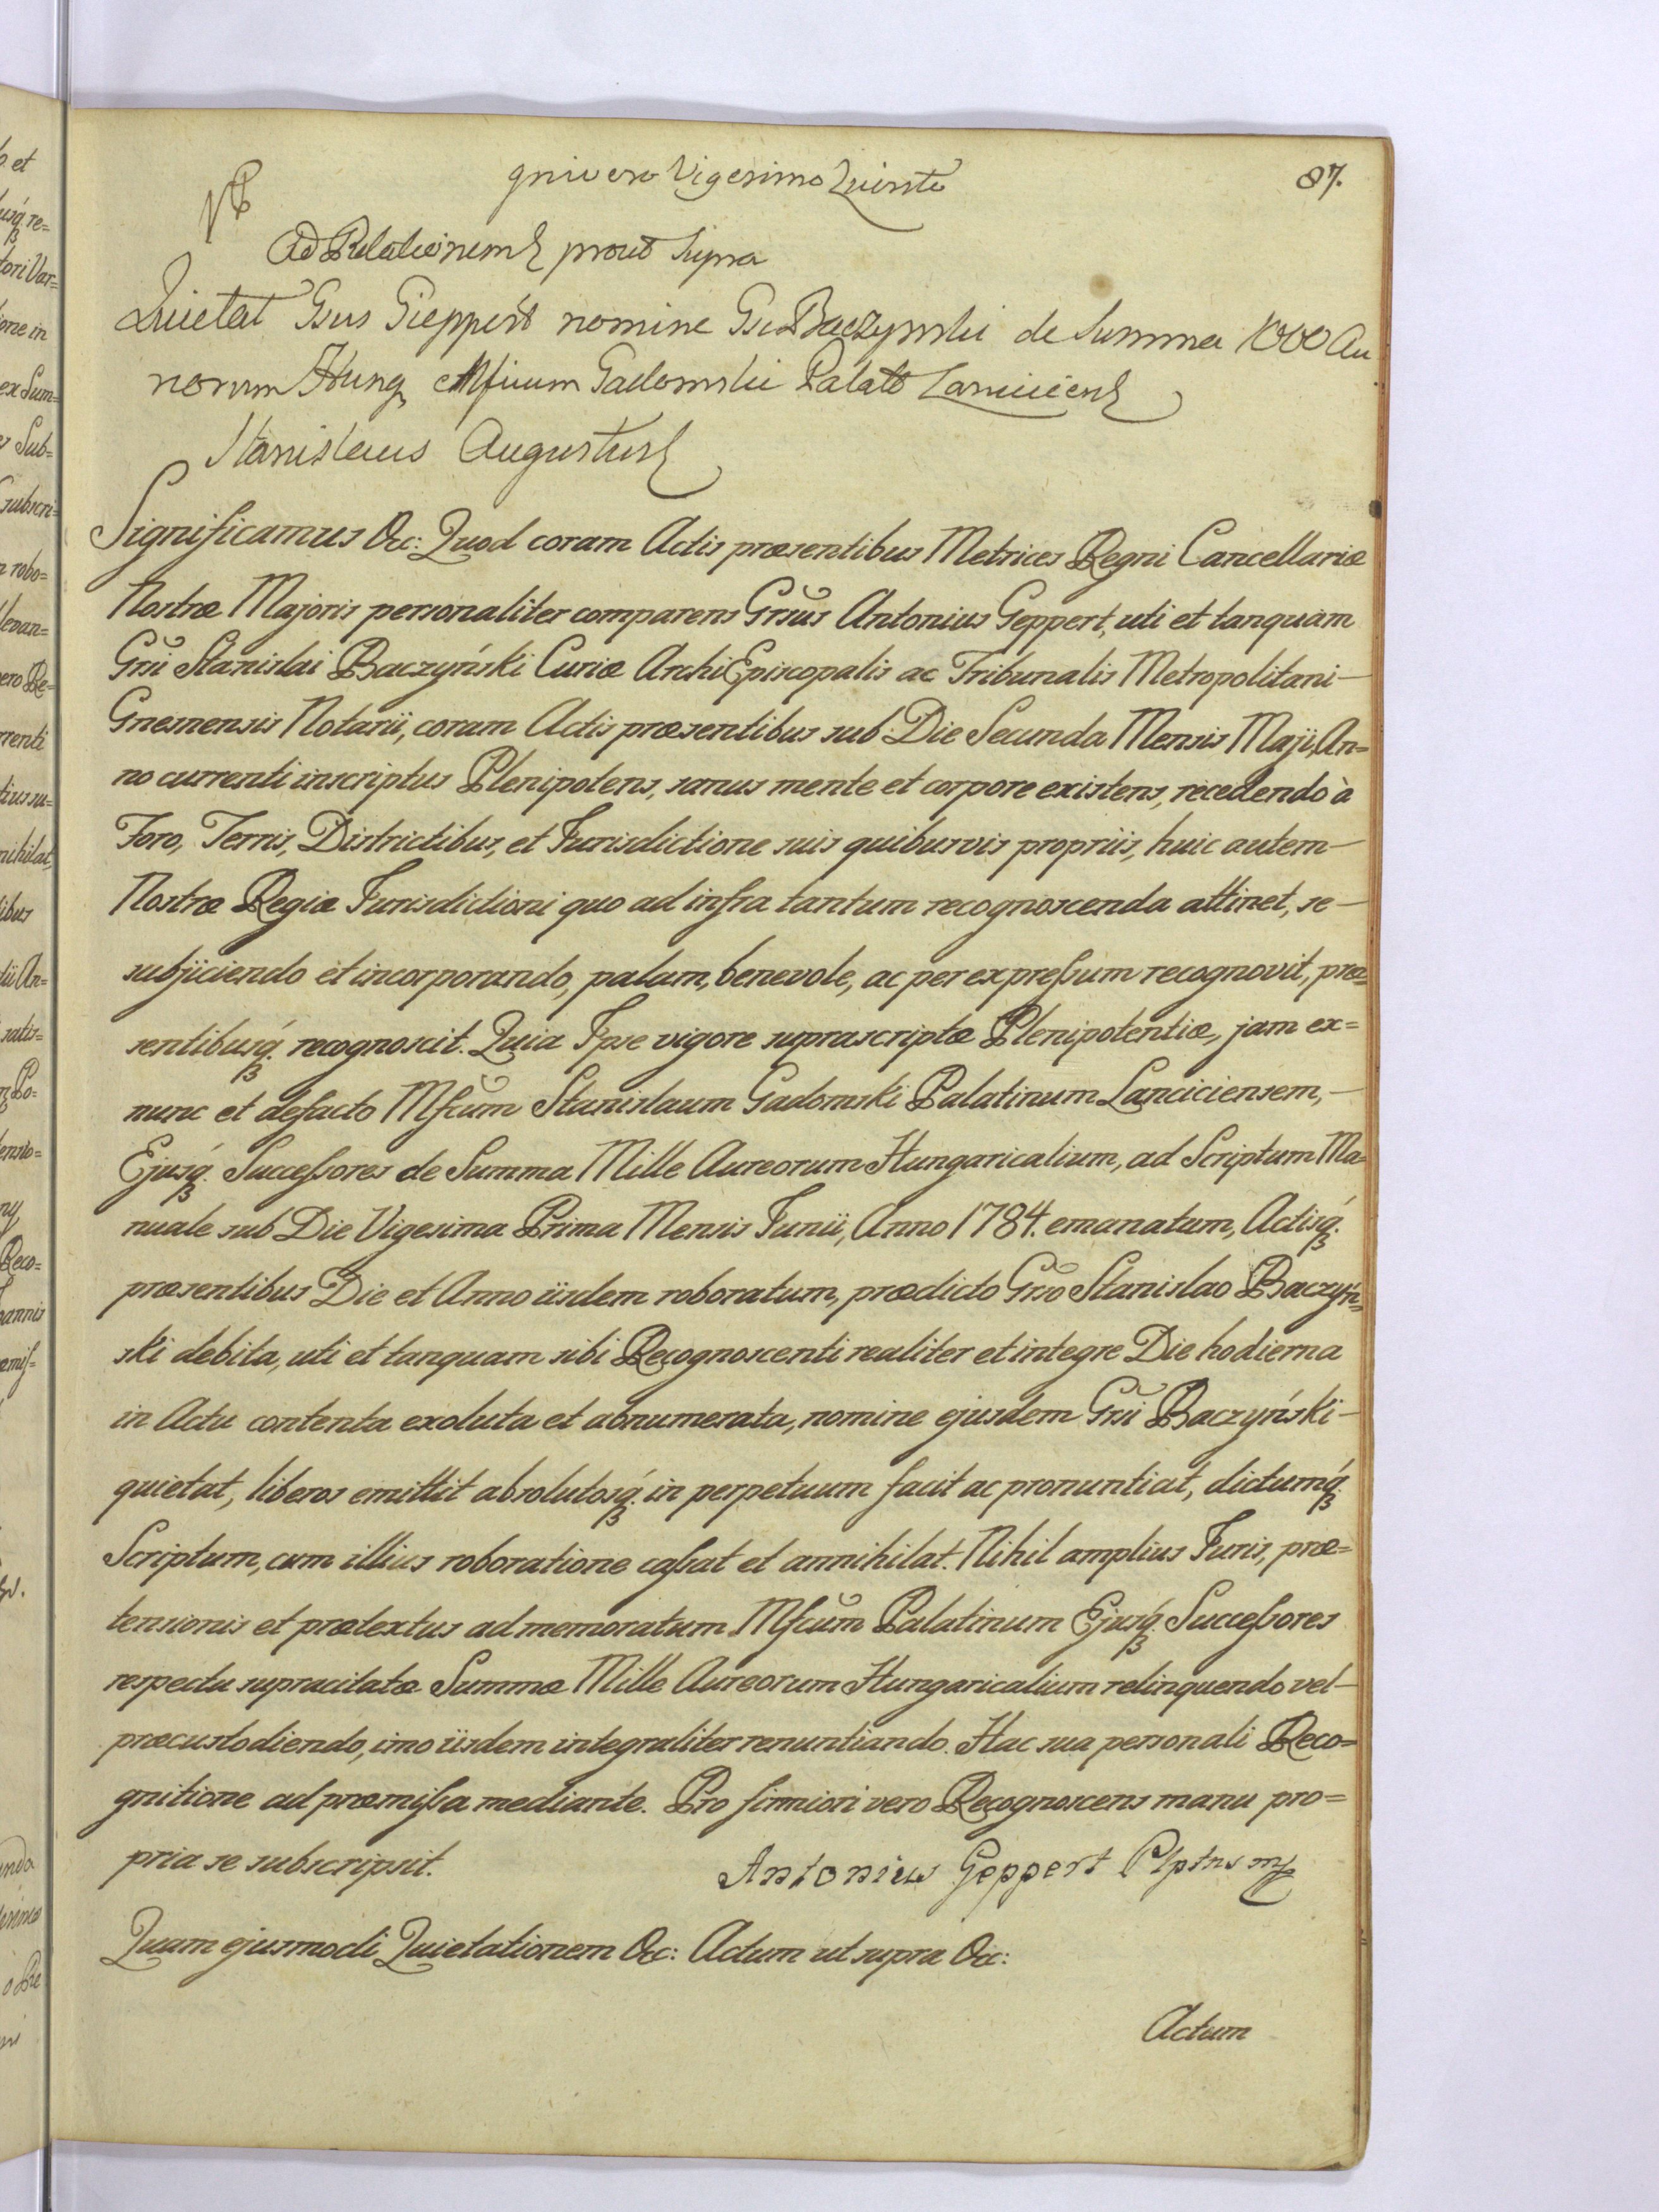 87.
Vigesimo Quinto
Ad Relationem prout supra
Quietat Gsus Gieppert nomine Gsi Baczynski de Summa 1000 Au
norum Hung Mficum Gadomski Palatt Lanciciens
Stanislaus Augustus
Significamus &c: Quod coram Actis præsentibus Metrices Regni Cancellariæ
Nostræ Majoris personaliter comparens Grsus Antonius Geppert, uti et tanquam
Grsi Stanislai Baczyński Curiæ ArchiEpiscopalis ac Tribunalis Metropolitani
Gnesnensis Notarii, coram Actis præsentibus sub Die Secunda Mensis Maji, An=
no currenti inscriptus Plenipotens, sanus mente et corpore existens, recedendo à
Foro, Terris, Districtibus, et Jurisdictione suis quibusvis propriis, huic autem
Nostræ Regiæ Jurisdictioni quo ad infra tantum recognoscenda attinet, se
subjiciendo et incorporando, palam, benevole, ac per expreſsum recognovit, præ=
sentibusq́; recognoscit. Quia Ipse vigore suprascriptæ Plenipotentiæ, jam ex=
nunc et defacto Mfcum Stanislaum Gadomski Palatinum Lanciciensem,
Ejusq́; Succeſsores de Summa Mille Aureorum Hungaricalium, ad Scriptum Ma=
nuale sub Die Vigesima Prima Mensis Junii, Anno 1784. emanatum, Actisq́;
præsentibus Die et Anno iisdem roboratum, prædicto Grso Stanislao Baczyń=
ski debita, uti et tanquam sibi Recognoscenti realiter et integre Die hodierna
in Actu contenta exoluta et abnumerata, nomine ejusdem Grsi Baczyński
quietat, liberos emittit absolutosq́; in perpetuum facit ac pronuntiat, dictumq́;
Scriptum, cum illius roboratione caſsat et annihilat. Nihil amplius Juris, præ=
tensionis et prætextus ad memoratum Mfcum Palatinum Ejusq́; Succeſsores
respectu supracitatæ Summæ Mille Aureorum Hungaricalium relinquendo vel
præcustodiendo, imo iisdem integraliter renuntiando. Hac sua personali Reco=
gnitione ad præmiſsa mediante. Pro firmiori vero Recognoscens manu pro=
pria se subscripsit.
Antonius Geppert Plptns mp
Quam ejusmodi Quietationem &c: Actum ut supra &c:
Actum